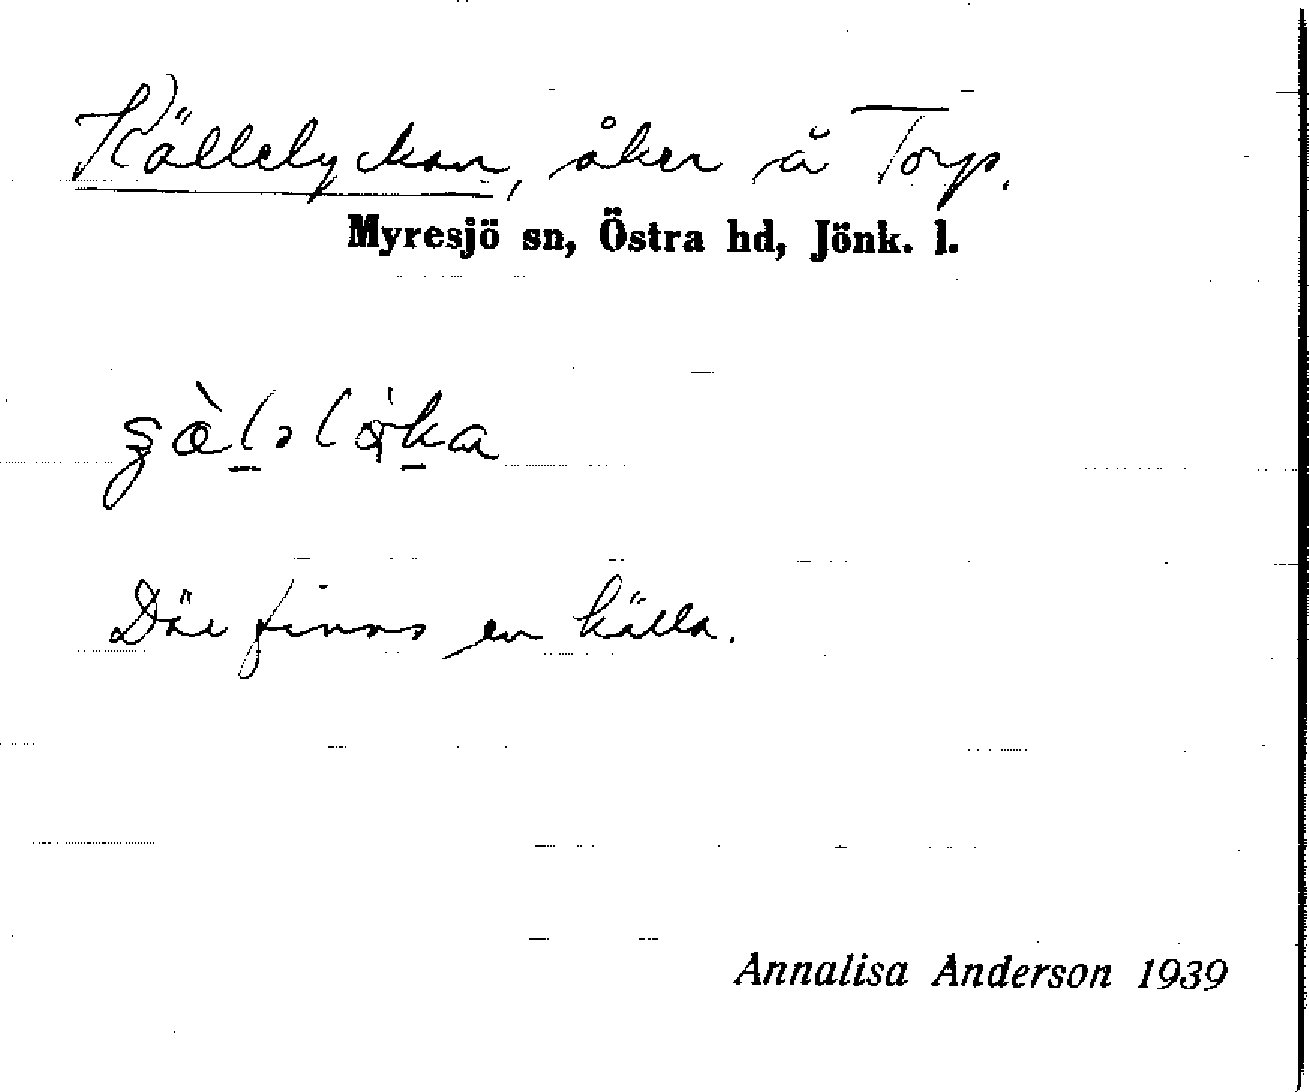 Källelyckan, åker å Torp.
Myresjö sn, Östra hd, Jönk. l.
Där finns en källa.
Annalisa Anderson 1939